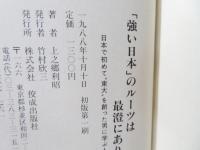 「強い日本」のルーツは
最澄にあり
日本で初めて“東大”を創った男に学ぶ
一九八八年十月十日　初版第一刷
定価　一三〇〇円
著者　上之郷利昭
発行者　竹村欣三
発行所　佼成出版社
〒一六六
東京都杉並区和田
電話（〇三）